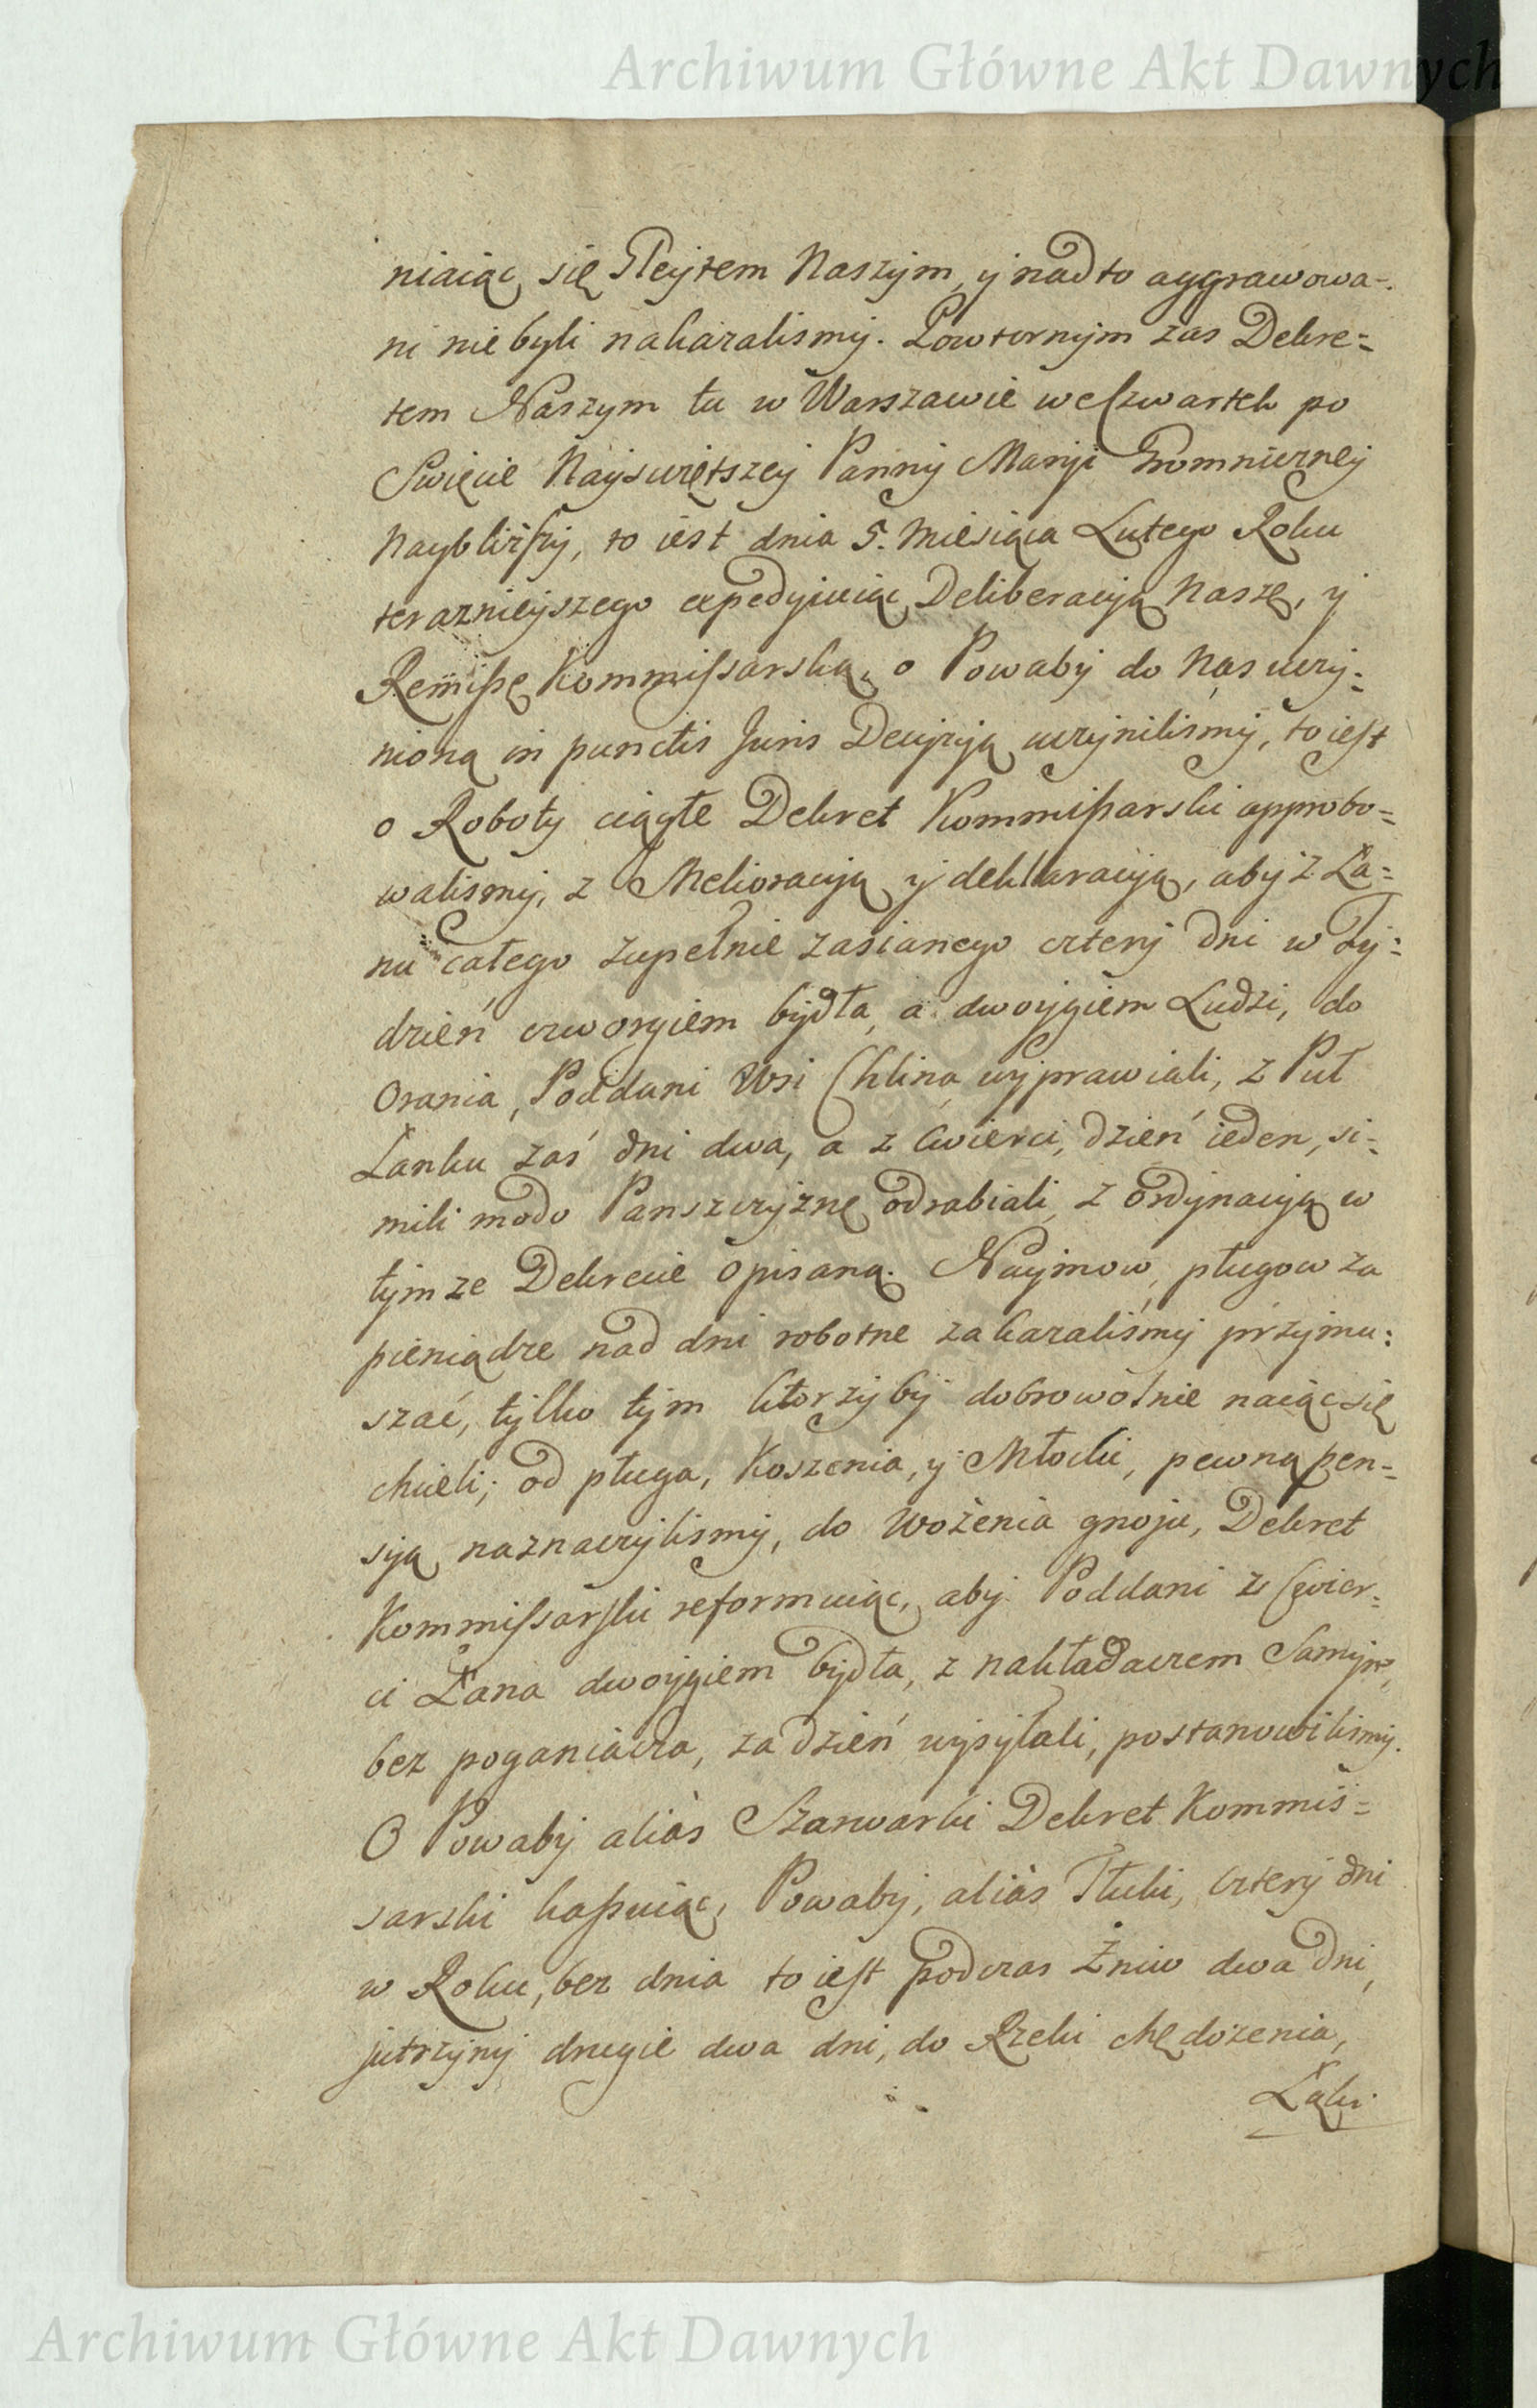 Archiwum Główne Akt Dawnych
niaiąc się Gleytem Naszym, y nadto aggrawowa-
ni nie byli nakazalismy. Powtornym zas Dekre=
tem Naszym tu w Warszawie we Czwartek po
Swięcie Nayswiętszey Panny Maryi Gromniczney
Naybliższy, to iest dnia 5. Miesiąca Lutego Roku
terazniejszego expedyiuiąc Deliberacyą Naszę, y
Remissę Kommissarską, o Powaby do Nas uczy=
nioną in punctis Juris Decyzyą uczyniliśmy, to iest
o Roboty ciągłe Dekret Kommissarski approbo=
walismy, z Melioracyą y deklaracyą, aby z Ła=
nu całego zupełnie zasianego cztery dni w Ty=
dzień czworgiem bydła, a dwoygiem Ludzi, do
Orania, Poddani Wsi Chlina wyprawiali, z Puł
Łanku zaś dni dwa, a z Cwierci, dzień ieden, si=
mili modo Panszczyznę odrabiali, z ordynacyą w
tymze Dekrecie opisaną. Naymow, pługow za
pieniądze nad dni robotne zakazaliśmy przymu=
szać, tylko tym ktorzyby dobrowolnie naiąc się
chcieli; od pługa, Koszenia, y Młocki, pewną pen=
syą naznaczylismy, do Wożenia gnoju, Dekret
Kommissarski reformuiąc, aby Poddani z Cwier=
ci Łana dwoygiem bydła, z nakładaczem Samym,
bez poganiacza, za dzień wysyłali, postanowilismy.
O Powaby aliàs Szarwarki Dekret Kommis=
sarski kassuiąc, Powaby, aliàs Tłuki, cztery dni
w Roku, bez dnia to iest podczas Żniw dwa dni,
jutrzyny drugie dwa dni, do Rzeki chędożenia,
Łąki
Archiwum Główne Akt Dawnych